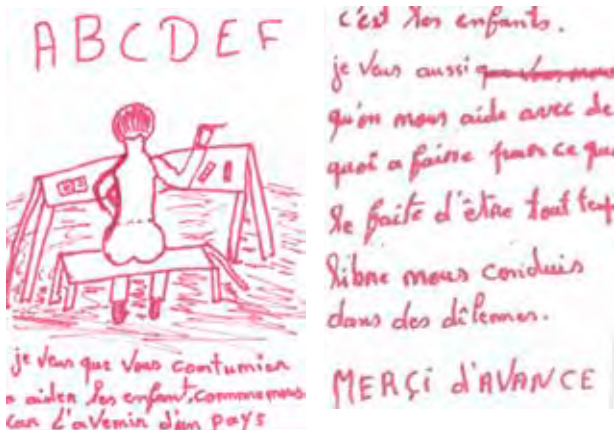 ABCDEF
je veux que vous contumier
a aider les enfant, comme nous
car l'avenir d'un pays
c'est les enfants.
je veus aussi
qu'on nous aide avec de
quoi a faire parce que
le faite d'être tout temp
libre nous conduis
dans des dilemnes.
MERÇi d'AVANCE